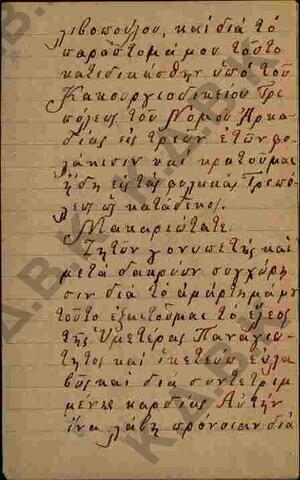 λιβοπούλου, καί διά τό
παράπτομά μου τοῦτο
κατεδικάσθην ὑπό τοῦ
Κακουργιοδικείου Τρι
πόλεως τοῦ Νομοῦ Ἀρκα
δίας εἰς τριῶν ἐτῶν φυ
λάκισιν καί κρατοῦμαι
ἤδη εἰς τάς φυλακάς Τριπό
λεως ὡς κατάδικος.
Μακαριώτατε
Ζητῶν γονυπετής καί
μετά δακρύων συγχώρη
σιν διά τό ἁμάρτημά μου
τοῦτο ἐξαιτοῦμαι τό ἔλεος
τῆς Ὑμετέρας Παναγιό
τητος καί ἱκετεύω εὐλα
βῶς καί διά συντετριμ
μένης καρδίας Αὐτήν
ἵνα λάβῃ πρόνοιαν διά